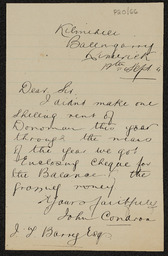 F20/66
Kilmihill
Ballingarry
Limerick
17th Sept
Dear Sir
I didnt make one
shilling rent of
Donoman this year
through the means
of the yes we got
Enclosing cheque for
the Balance of the
grazing money
Yours faithfully
John Condron
J. G Barry Esq